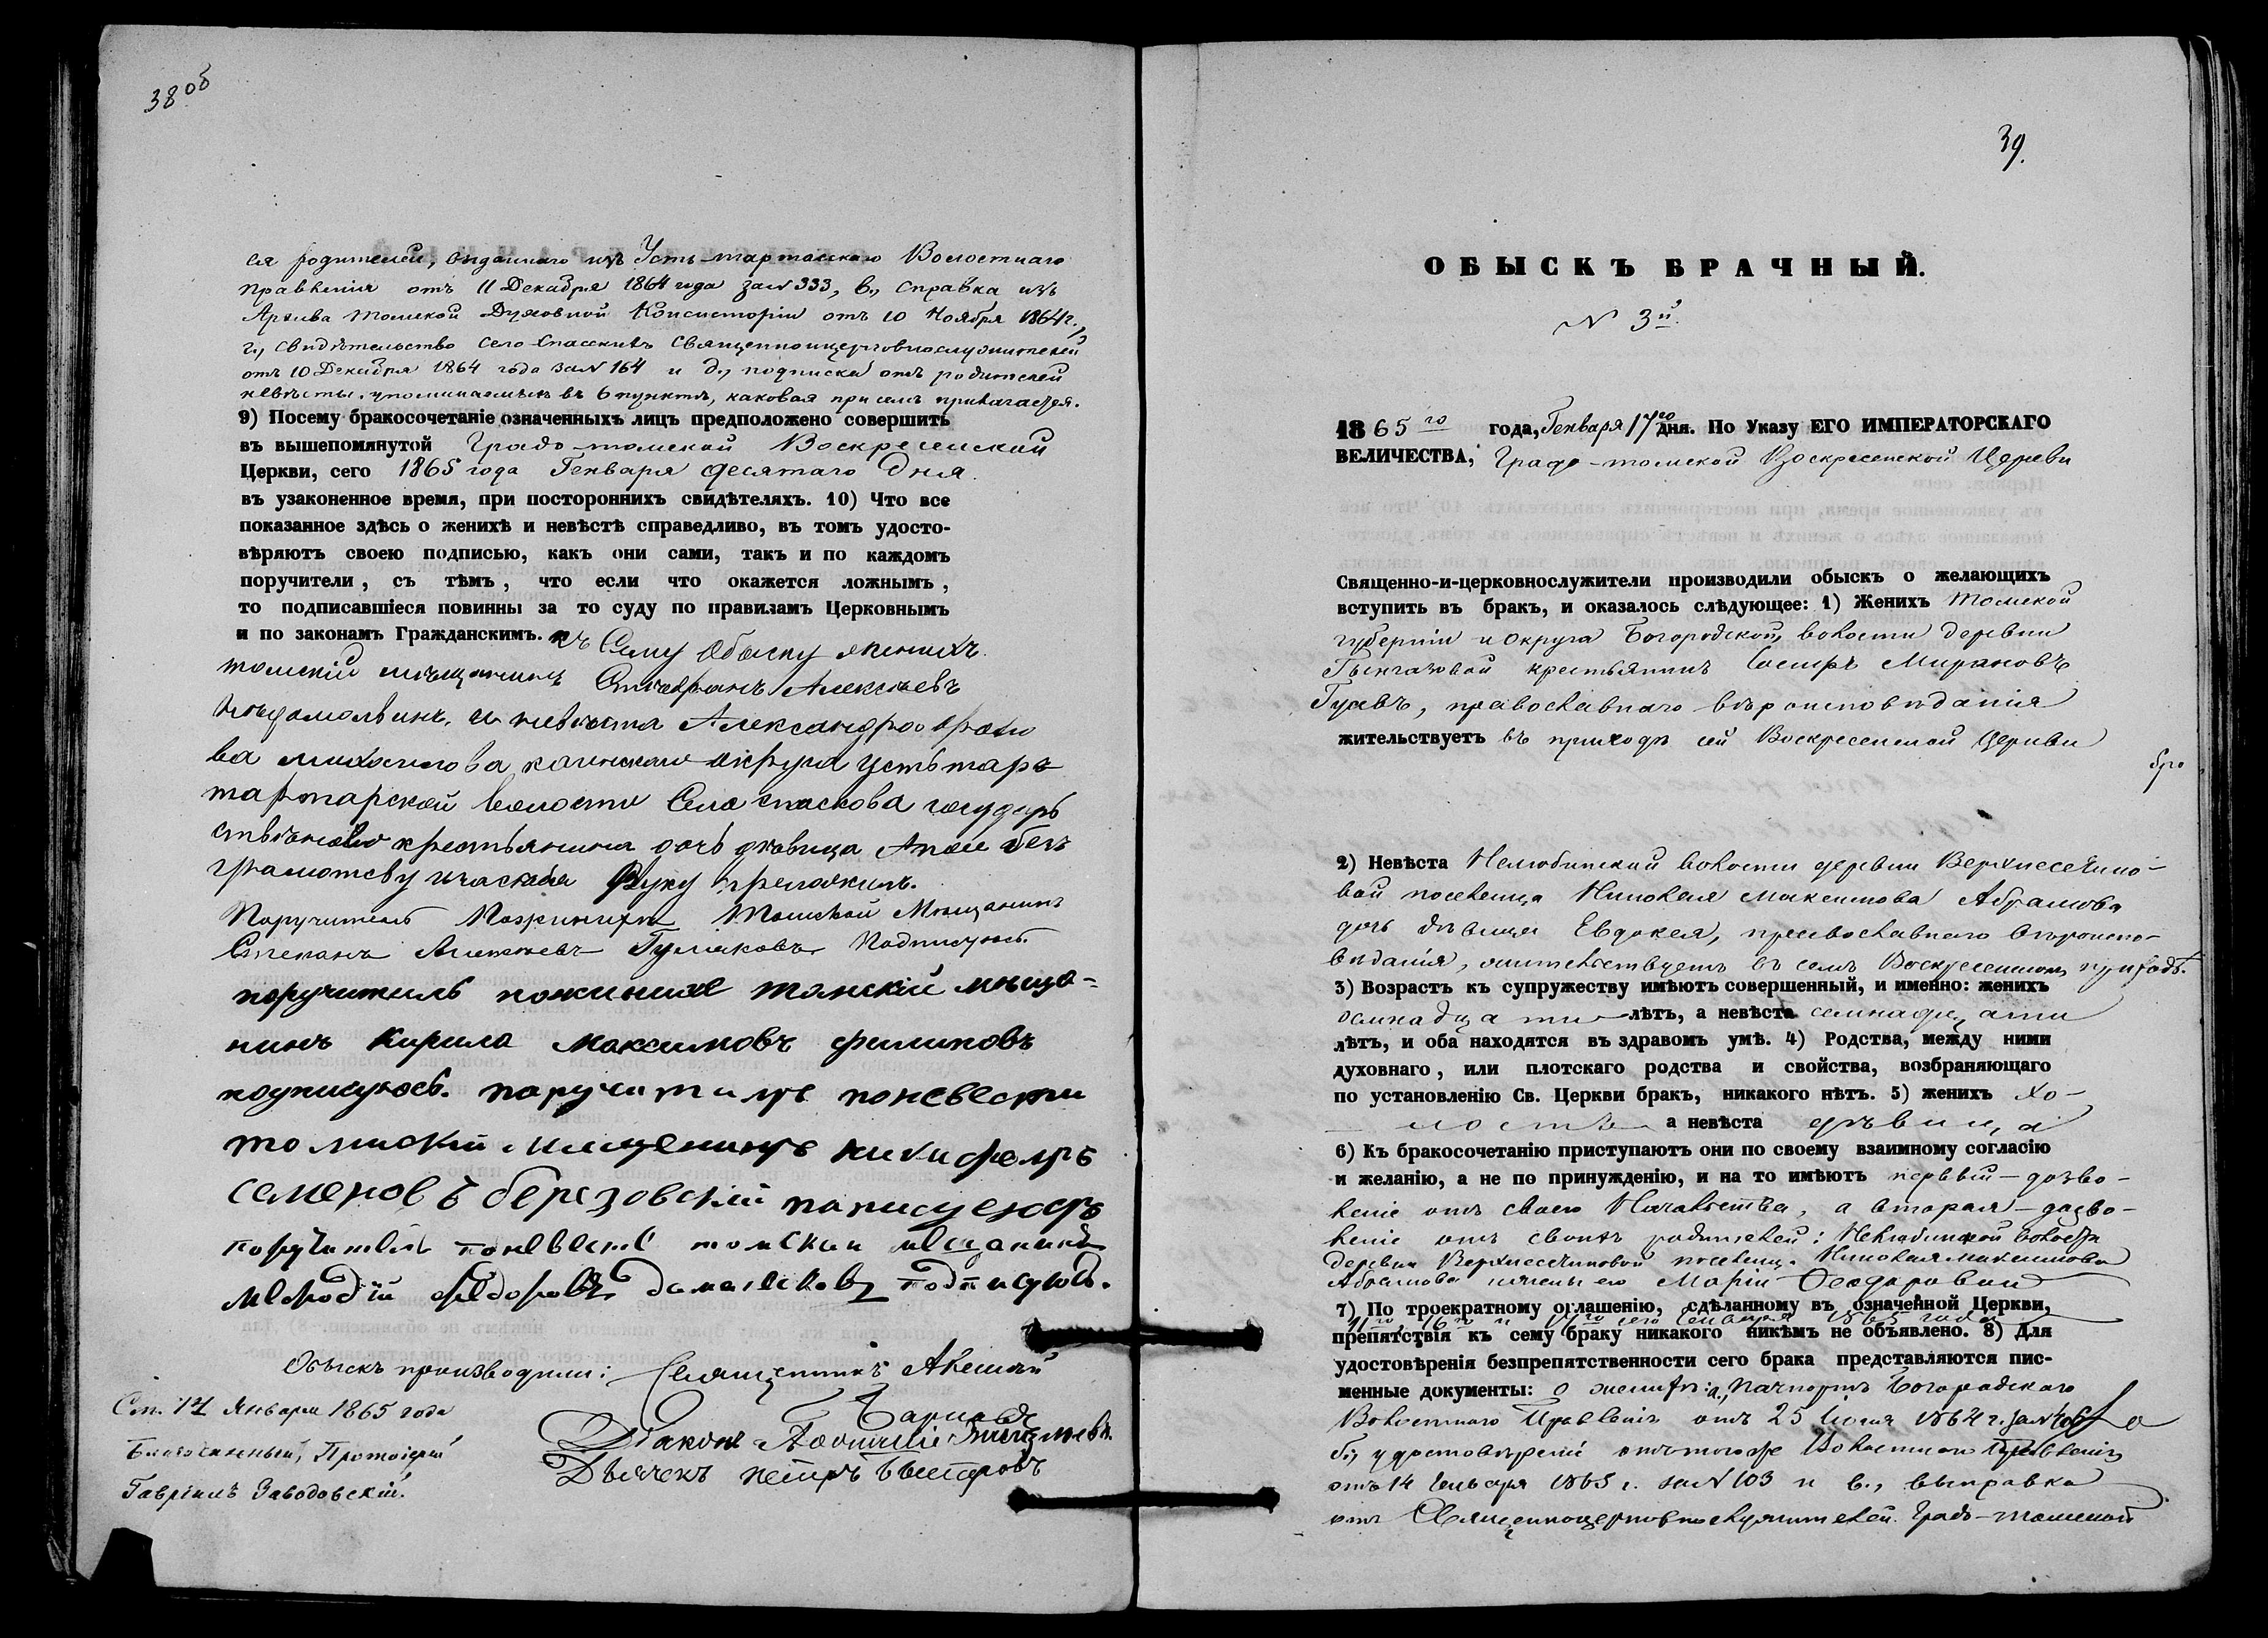 38 об
ся родителей, выданнаго изъ Усть-тартасскаго Волостнаго
правленія отъ 11 Декабря 1864 года за N 333, в., справка изъ
Архива Томской Духовной Консисторіи отъ 10 Ноября 1864 г.,
г., свидѣтельство села Спасскихъ священноицерковнослужителей
отъ 10 Декабря 1864 года за N 164 и д., подписка отъ родителей
невѣсты, упоминаемыхъ въ 6 пунктѣ, каковая при семъ прилагается.
9) Посему бракосочетаніе означенныхъ лицъ предположено совершить
въ вышепомянутой Градо-томской Воскресенской
Церкви, сего 1865 года Генваря десятаго дня.
въ узаконенное время, при постороннихъ свидѣтеляхъ. 10) Что все
показанное здѣсь о женихѣ и невѣстѣ справедливо, въ томъ удосто-
вѣряютъ своею подписью, какъ они сами, такъ и по каждомъ
поручители, съ тѣмъ, что если что окажется ложнымъ,
то подписавшіеся повинны за то суду по правиламъ Церковнымъ
и по законамъ Гражданскимъ. къ Сему Обыску женихъ
томскій мѣщанинъ Алексѣевъ
и невѣста Александра
ва каинскаго округа устьтар
тартарской волости Села спаскова государ
ственово крестьянина дочь дѣвица
руку приложилъ.
Поручитель Пожениху Томской Мѣщанинъ
Степанъ Алексѣевъ Гулѣковъ Подписуюсь.
поручитель пожинихе томскій мѣща-
нинъ Кирила Максимовъ филиповъ
подписуюсь. поручитиль поневести
томский мищенинъ никифоръ
семеновъ березовский
поручитель поневесте томскаи мещанинъ
мефодий федоровъ подписуюсь.
Обыскъ производили: Священникъ Алексѣй
Діаконъ
Дьячекъ петръ
Ст. 14 Января 1865 года
Благочинный, Протоіерей
Гавріилъ Заводовскій.
39.
ОБЫСКЪ БРАЧНЫЙ.
N 3й.
1865го года, Генваря 17го дня. По Указу ЕГО ИМПЕРАТОРСКАГО
ВЕЛИЧЕСТВА, Градо-томской Воскресенской Церкви
Священно-и-церковнослужители производили обыскъ о желающихъ
вступить въ бракъ, и оказалось слѣдующее: 1) Женихъ Томской
губерніи и округа Богородской волости деревни
крестьянинъ Мироновъ
Гусевъ, православнаго вѣроисповѣданія
жительствуетъ въ приходѣ сей Воскресенской Церкви
2) Невѣста Нелюбинской волости деревни Верхнесечино-
вой поселенца Николая Максимова Абрамова
дочь дѣвица Евдокея, православнаго вѣроиспо-
вѣданія, жительствуетъ въ семъ Воскресенскомъ приходѣ.
3) Возрастъ къ супружеству имѣютъ совершенный, и именно: женихъ
осмнадцати лѣтъ, а невѣста семнадцати
лѣтъ, и оба находятся въ здравомъ умѣ. 4) Родства, между ними
духовнаго, или плотскаго родства и свойства, возбраняющаго
по установленію Св. Церкви бракъ, никакого нѣтъ. 5) женихъ хо-
лостъ а невѣста дѣвица
6) Къ бракосочетанію приступаютъ они по своему взаимному согласію
и желанію, а не по принужденію, и на то имѣютъ первый - дозво-
леніе отъ своего Начальства, а вторая - дозво-
леніе отъ своихъ родителей: Нелюбинской волости
деревни Верхнесечиновой поселенца Николая Максимова
Абрамова и жены его Маріи Ѳеодоровой
7) По троекратному оглашенію, сдѣланному въ означенной Церкви,
16го и 17го сего Генваря 1865 года
препятствія къ сему браку никакого никѣмъ не объявлено. 8) Для
удостовѣренія безпрепятственности сего брака представляются пис-
менные документы: о женихѣ: а., Пачпортъ Богородскаго
Волостнаго Правленія отъ 25 1864 г. за N
б., удостовѣреніе отъ того же Волостнаго Правленія
отъ 14 Генваря 1865 г. за N 103 и в., выправка
отъ Священноцерковнослужителей Градо-томской